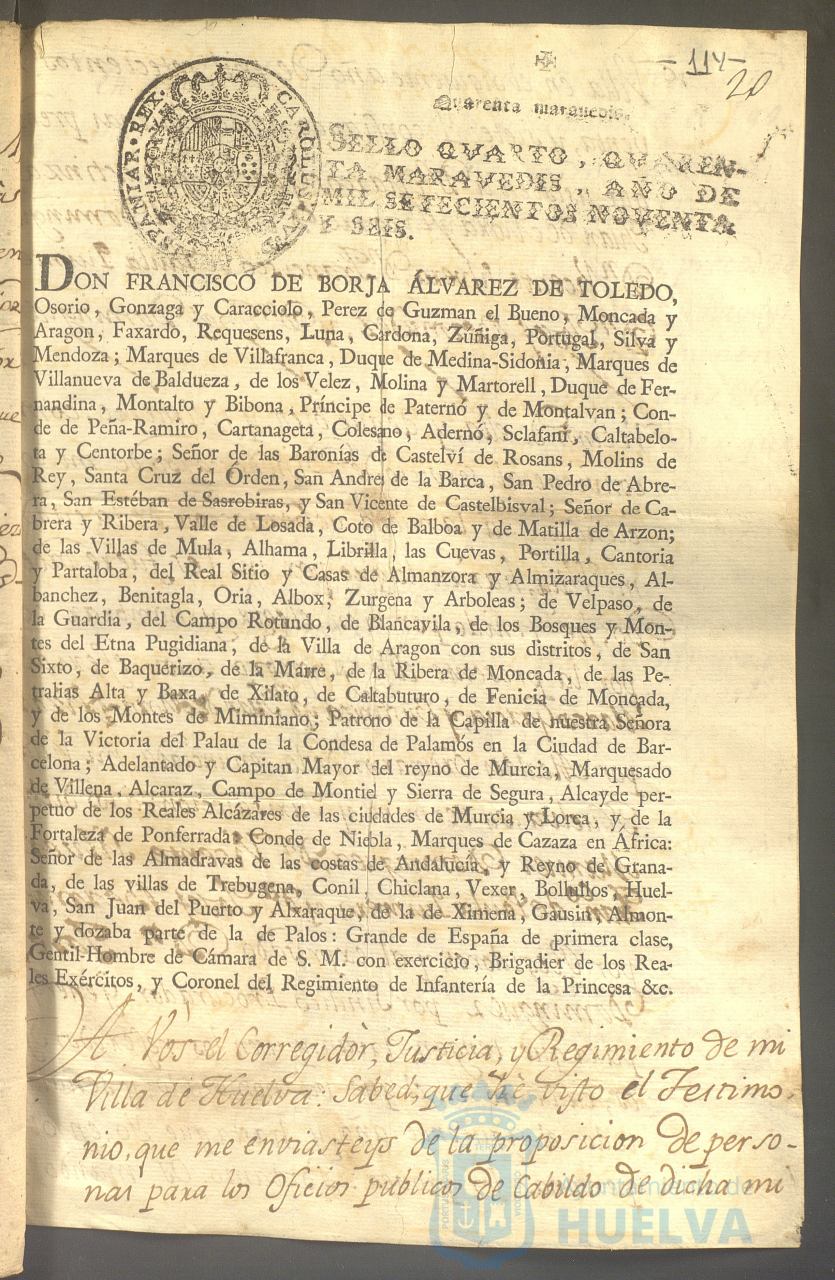 -114-
20
Quarenta marauedis.
HISPANIAR·REX· CAROLUS·IV·
SELLO QVARTO, QUAREN-
TA MARAVEDIS, AÑO DE
MIL SETECIENTOS NOVENTA
Y SEIS.
DON FRANCISCO DE BORJA ÁLVAREZ DE TOLEDO,
Osorio, Gonzaga y Caracciolo, Perez de Guzman el Bueno, Moncada y
Aragon, Faxardo, Requesens, Luna, Cardona, Zúñiga, Portugal, Silva y
Mendoza; Marques de Villafranca, Duque de Medina-Sidonia, Marques de
Villanueva de Baldueza, de los Velez, Molina y Martorell, Duque de Fer-
nandina, Montalto y Bibona, Príncipe de Paternó y de Montalvan; Con-
de de Peña-Ramiro, Cartanageta, Colesano, Adernó, Sclafani, Caltabelo-
ta y Centorbe; Señor de las Baronías de Castelví de Rosans, Molins de
Rey, Santa Cruz del Órden, San Andres de la Barca, San Pedro de Abre-
ra, San Estéban de Sasrobiras, y San Vicente de Castelbisval; Señor de Ca-
brera y Ribera, Valle de Losada, Coto de Balboa y de Matilla de Arzon;
de las Villas de Mula, Alhama, Librilla, las Cuevas, Portilla, Cantoria
y Partaloba, del Real Sitio y Casas de Almanzora y Almizaraques, Al-
banchez, Benitagla, Oria, Albox, Zurgena y Arboleas; de Velpaso, de
la Guardia, del Campo Rotundo, de Blancavila, de los Bosques y Mon-
tes del Etna Pugidiana; de la Villa de Aragon con sus distritos, de San
Sixto, de Baquerizo, de la Marre, de la Ribera de Moncada, de las Pe-
tralias Alta y Baxa, de Xilato, de Caltabuturo, de Fenicia de Moncada,
y de los Montes de Miminiano; Patrono de la Capilla de nuestra Señora
de la Victoria del Palau de la Condesa de Palamós en la Ciudad de Bar-
celona; Adelantado y Capitan Mayor del reyno de Murcia, Marquesado
de Villena, Alcaraz, Campo de Montiel y Sierra de Segura, Alcayde per-
petuo de los Reales Alcázares de las ciudades de Murcia y Lorca, y de la
Fortaleza de Ponferrada: Conde de Niebla, Marques de Cazaza en África:
Señor de las Almadravas de las costas de Andalucía, y Reyno de Grana-
da, de las villas de Trebugena, Conil, Chiclana, Vexer, Bollullos, Huel-
va, San Juan del Puerto y Alxaraque, de la de Ximena, Gausin, Almon-
te y dozaba parte de la de Palos: Grande de España de primera clase,
Gentil-Hombre de Cámara de S. M. con exercicio, Brigadier de los Rea-
les Exércitos, y Coronel del Regimiento de Infantería de la Princesa &c.
A Vos el Corregidòr, Justicia, y Regimiento de mi
Villa de Huelva: Sabed, que hé visto el Testimo-
nio, que me enviasteys de la proposicion de perso-
nas para los Oficios publicos de Cabildo de dicha mi
HUELVA